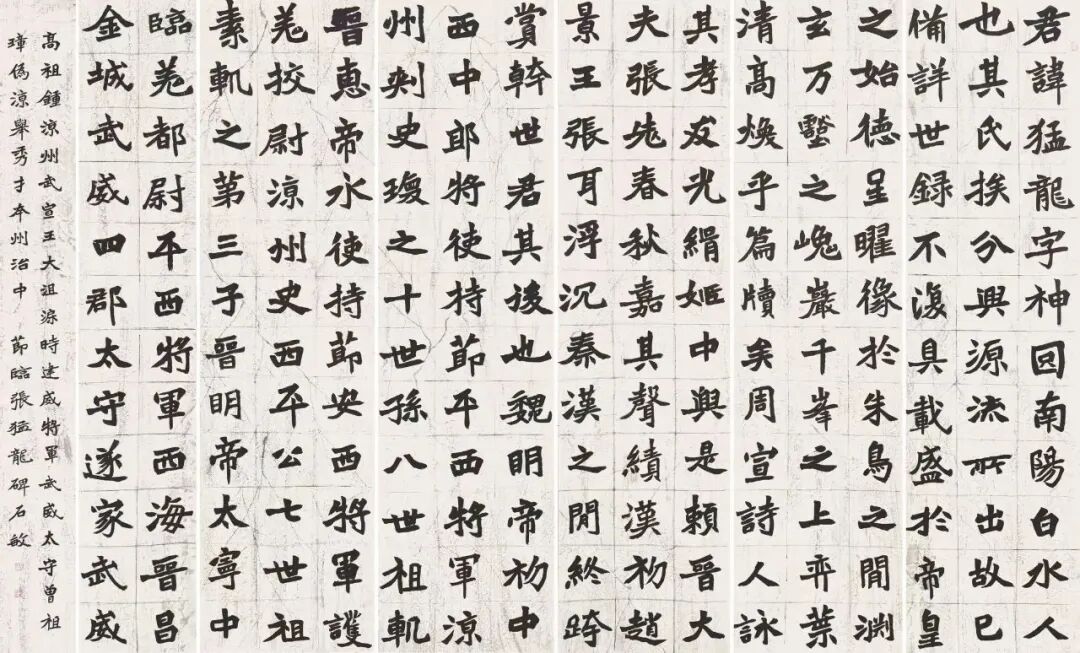 君諱猛龍字神囧南陽白水人
也其氏族分興源流所出故已
備詳世録不復具載盛於帝皇
之始德呈曜像於朱鳥之閒淵
玄万壑之巉巖千峯之上弈葉
清高煥乎篇牘矣周宣詩人詠
其孝友光緝姬中興是賴晉大
夫張老春秋嘉其聲績漢初趙
景王張耳浮沉秦漢之閒終跨
賞榦世君其後也魏明帝初中
西中郎將使持節平西將軍涼
州刺史瓊之十世孫八世祖軌
晉惠帝永使持節安西將軍護
羌校尉涼州史西平公七世祖
素軌之第三子晉明帝太寧中
臨羌都尉平西將軍西海晉昌
金城武威四郡太守遂家武威
高祖鍾涼州武宣王大沮渠時建威將軍武威太守曾祖
璋偽涼舉秀才本州治中 節臨張猛龍碑石敏